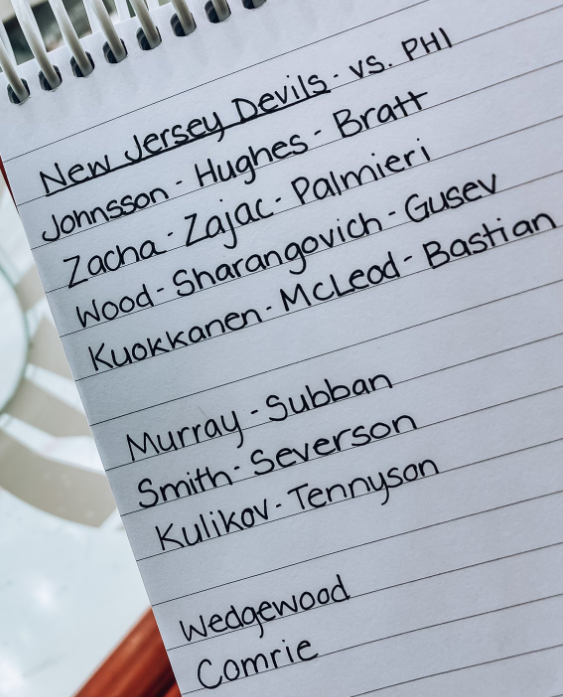 New Jersey Devils - vs. PHI
Johnsson - Hughes - Bratt
Zacha - Zajac - Palmieri
Wood - Sharangovich - Gusev
Kuokkanen - McLeod - Bastian
Murray - Subban
Smith - Severson
Kulikov - Tennyson
Wedgewood
Comrie